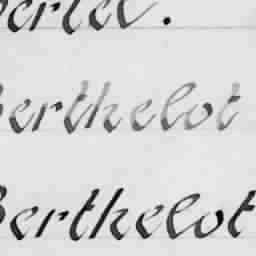 Bertel.
Berthelot
Berthelot